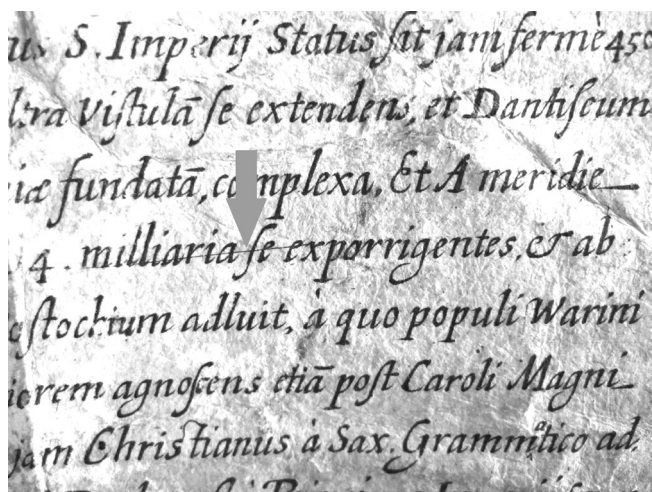 us S. Imperij Status ſit jam fermè 450
ltra Viſtulā ſe extendens, et Dantiſcum
iæ fundatā, complexa, Et A meridie
4. milliaria ſe exporrigentes, & ab
oſtochium adluit, à quo populi Warini
iorem agnoſcens etiā poſt Caroli Magni
jam Christianus à Sax. Grammatico ad